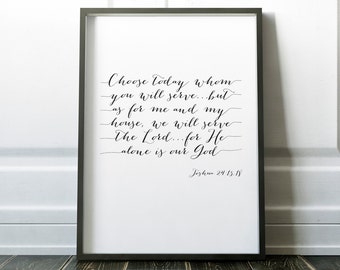 Choose today whom
you will serve...but
as for me and my
house, we will serve
the Lord...for He
alone is our God
Joshua 24:15,18